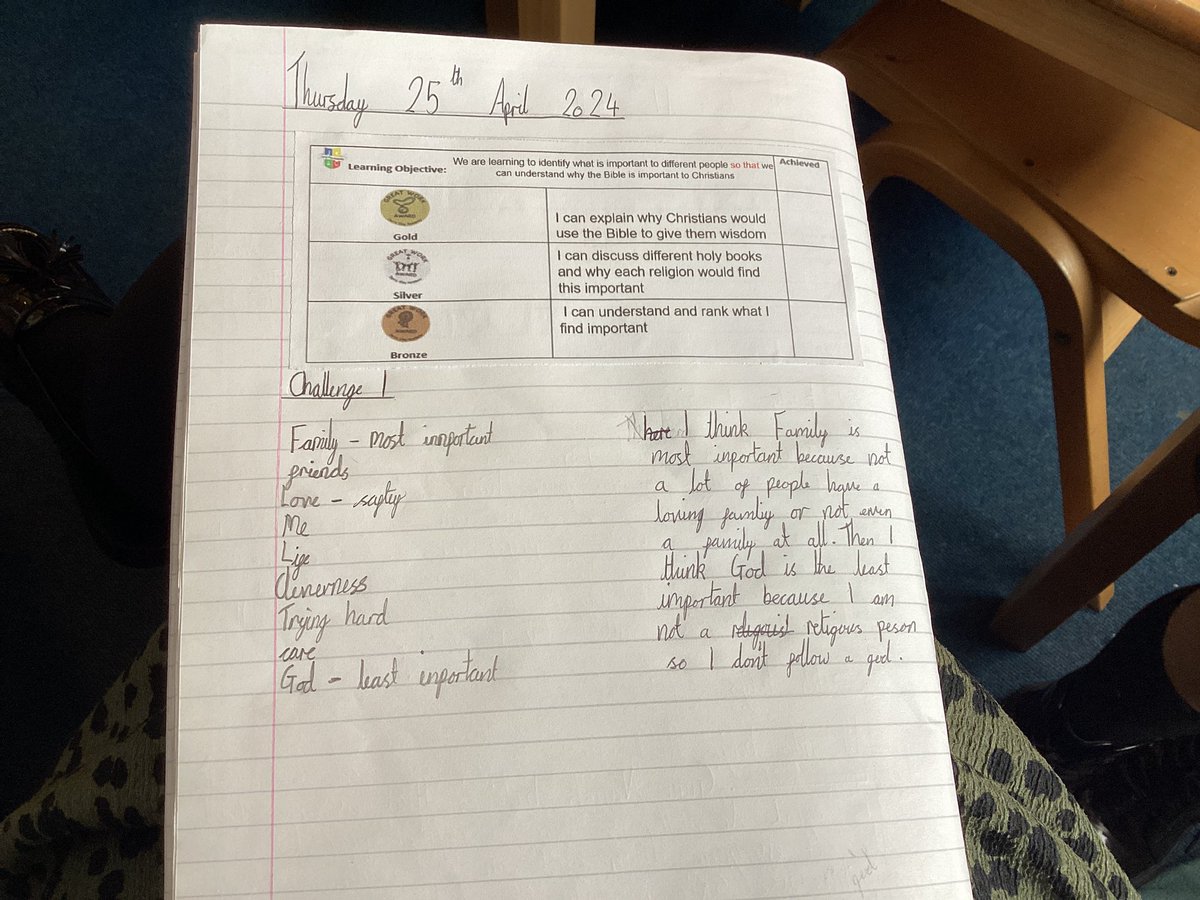 Thursday 25th April 2024
Learning Objective:
We are learning to identify what is important to different people so that we
can understand why the Bible is important to Christians
Achieved
GREAT WORK
AWARD
Gold
I can explain why Christians would
use the Bible to give them wisdom
GREAT WORK
AWARD
Silver
I can discuss different holy books
and why each religion would find
this important
GREAT WORK
AWARD
Bronze
I can understand and rank what I
find important
Challenge 1
Family - most innportant
friends
Love - safty
Me
Life
cleverness
Trying hard
care
God - least inportant
I think Family is
most inportant because not
a lot of people have a
loving famliy or not even
a family at all. Then I
think God is the least
important because I am
not a religous peson
so I don't follow a god.
god